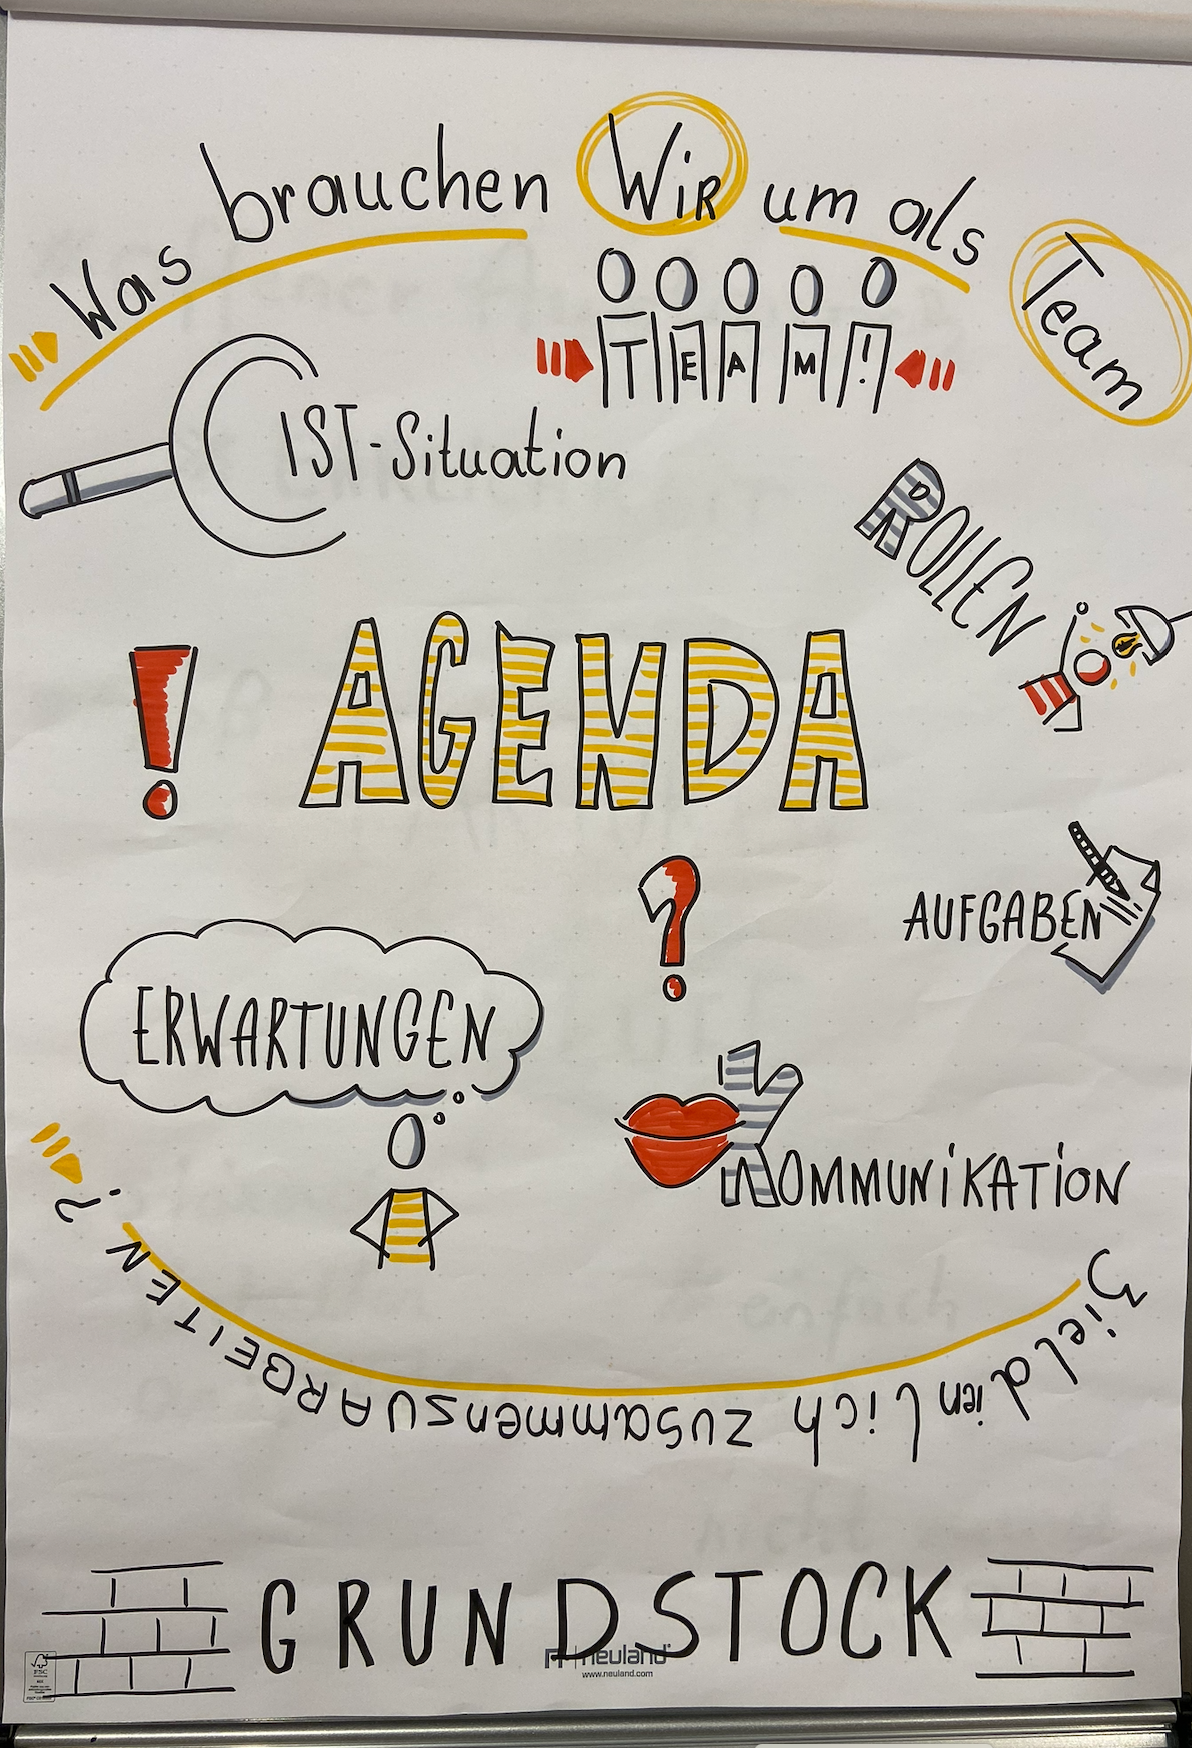 Was brauchen WiR um als Team
TEAM!
IST-Situation
ROLLEN
! AGENDA
?
AUFGABEN
ERWARTUNGEN
KOMMUNiKATiON
Zieldienlich zusammenzuARBEITEN ?
GRUNDSTOCK
neuland
www.neuland.com
FSC